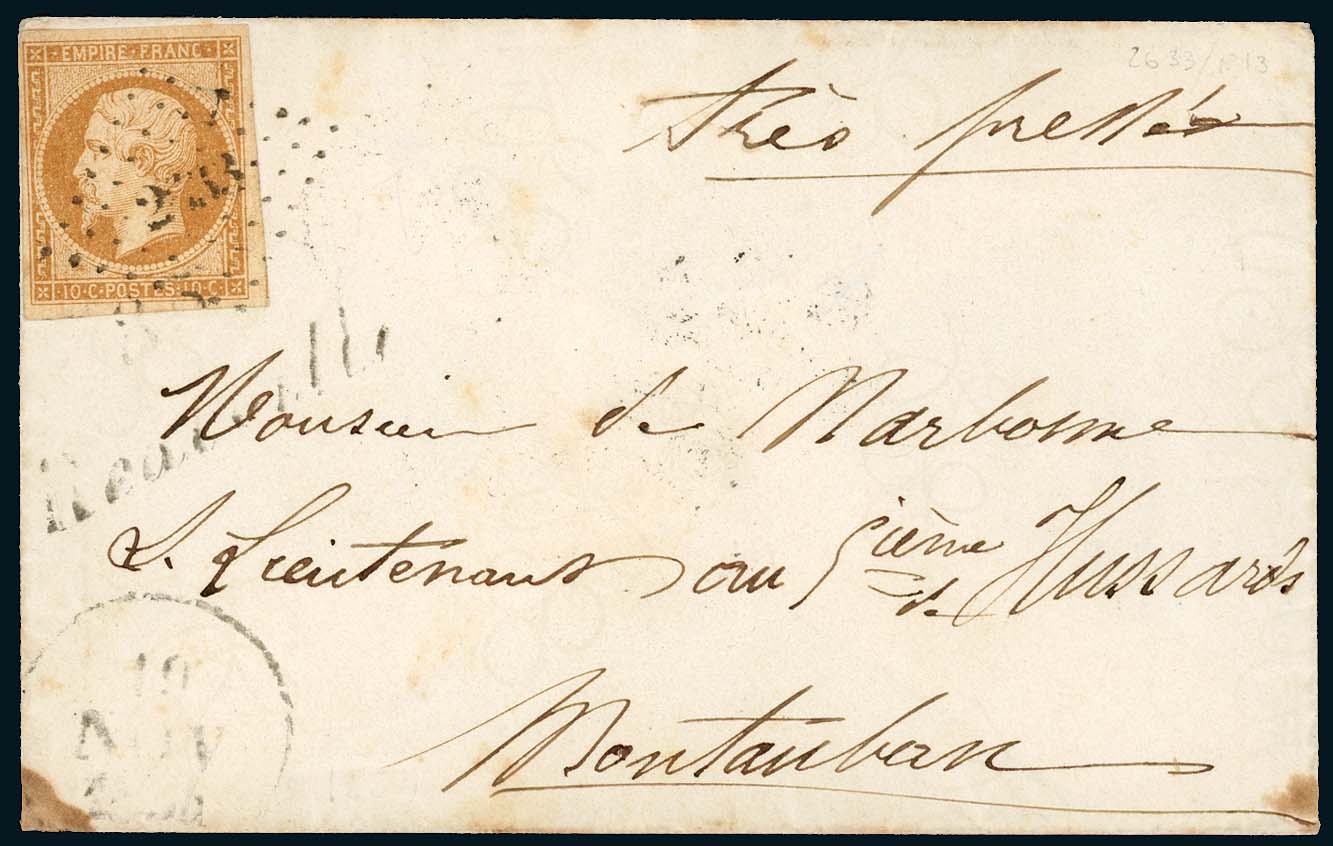 EMPIRE FRANC
10·C·POSTES·10·C·
2633/P13
très pressée
Monsieur de Narbonne
S. Lieutenant au 5ième de Hussards
Montauban
19
NOV